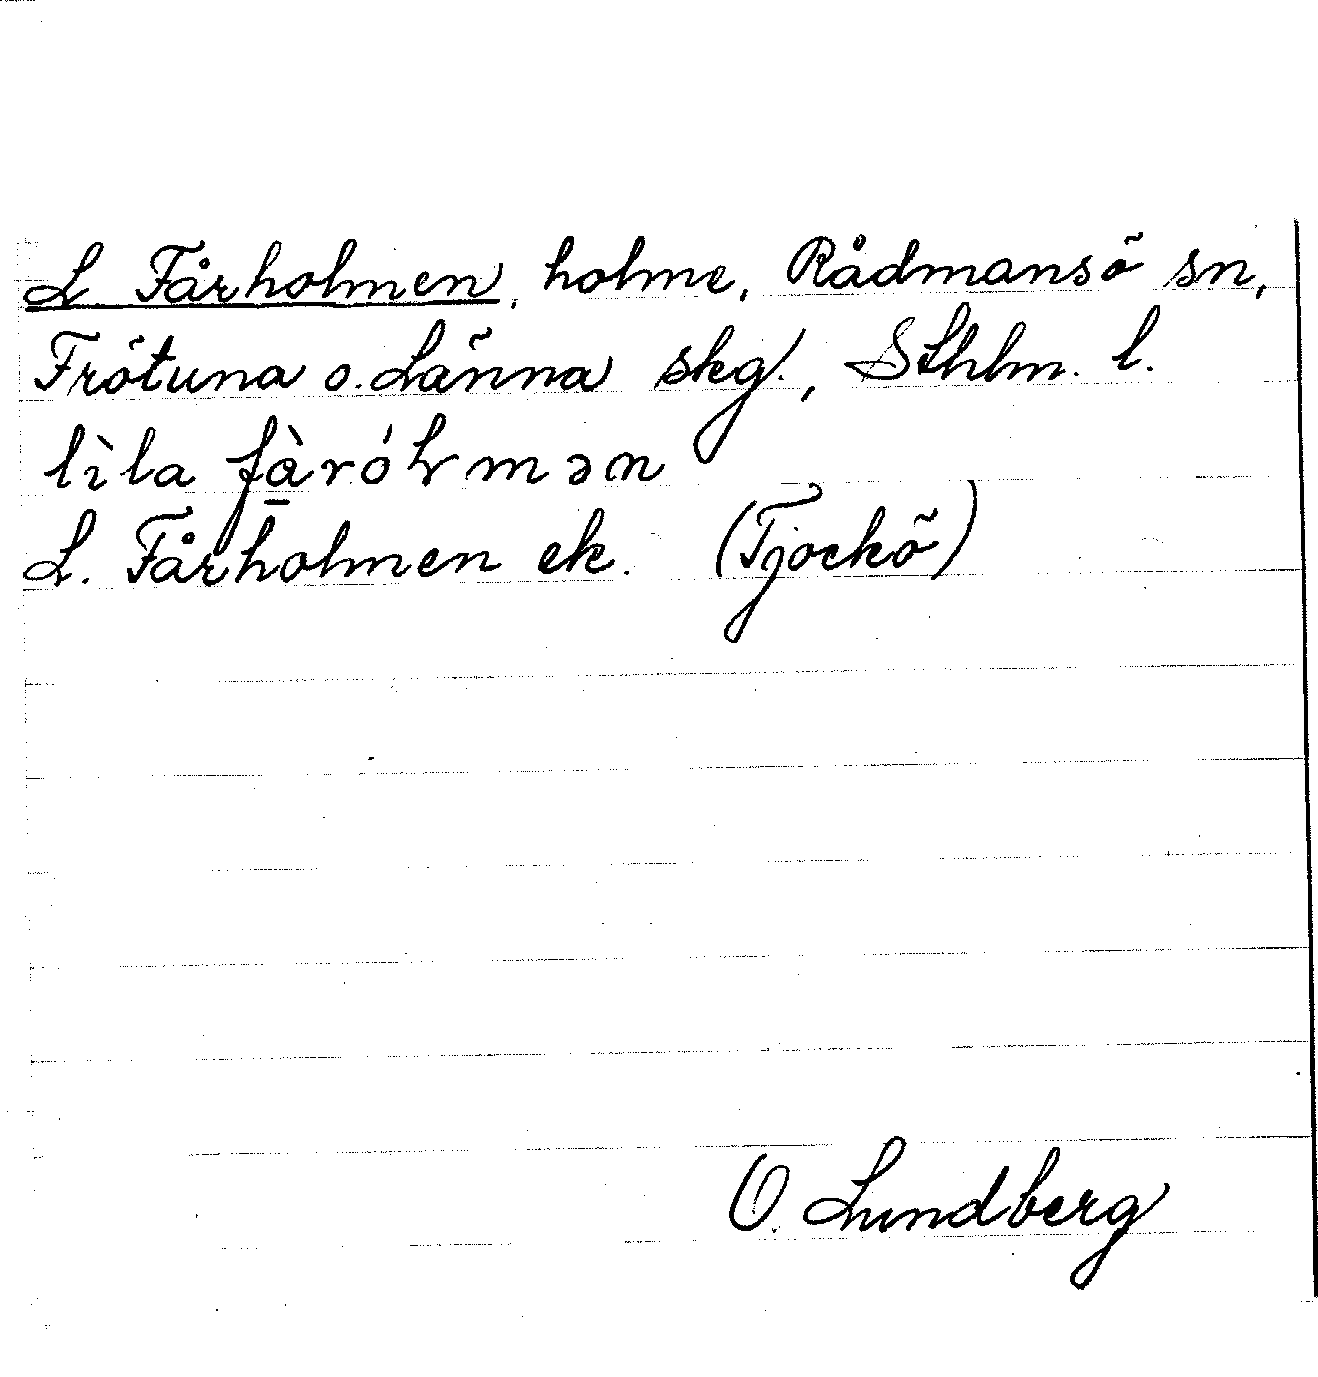 L. Fårholmen, holme, Rådmansö sn,
Frötuna o. Länna skg., Sthlm. l.
lìla fà̱rólmən
L. Fårholmen ek. (Tjockö)
O. Lundberg